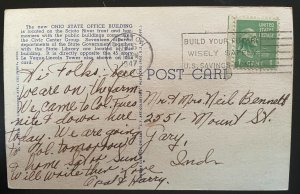 The new OHIO STATE OFFICE BUILDING
is located on the Scioto River front and har-
monizes with the public buildings comprising
the Civic Center Group. Seventeen different
departments of the State Government together
with the State Library are located in the Build-
ing. It is directly opposite the 45 story
Le Veque-Lincoln Tower also shown on this
card.
BUILD YOUR
WISELY
U.S. SAVINGS
1 CENT 1
POST CARD
Hi Folks:- Here
we are on the farm.
We came to Col. Tues
nite & down here
today. We are going
to Col. tomorrow
& home Sat or Sun.
Will write then. Love
Harry.
Mr & Mrs Neil Bennett
2251 Mount St.
Gary,
Ind